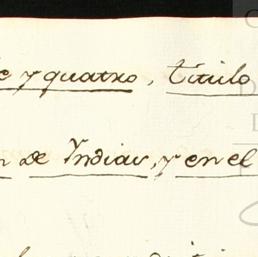 e y quatro, titulo
n de Indias, y en el